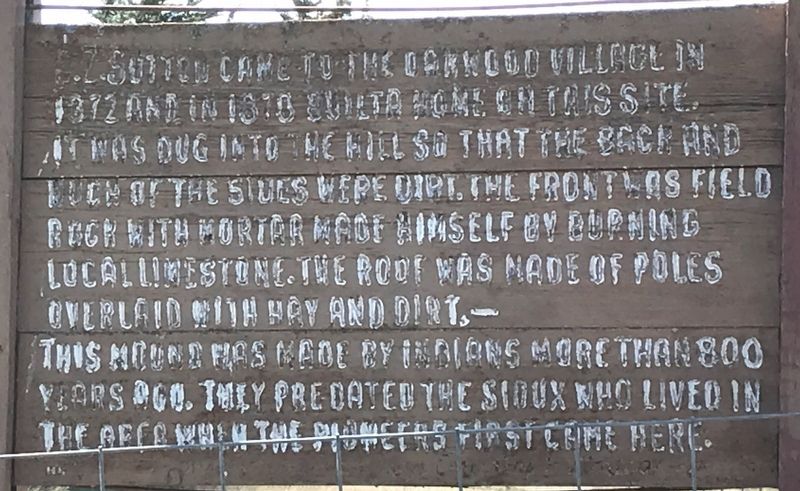 E.Z. SUTTON CAME TO THE OAKWOOD VILLAGE IN
1872 AND IN 1878 BUILT A HOME ON THIS SITE.
IT WAS DUG INTO THE HILL SO THAT THE BACK AND
MUCH OF THE SIDES WERE DIRT. THE FRONT WAS FIELD
ROCK WITH MORTAR MADE HIMSELF BY BURNING
LOCAL LIMESTONE. THE ROOF WAS MADE OF POLES
OVERLAID WITH HAY AND DIRT.—
THIS MOUND WAS MADE BY INDIANS MORE THAN 800
YEARS AGO. THEY PREDATED THE SIOUX WHO LIVED IN
THE AREA WHEN THE PIONEERS FIRST CAME HERE.